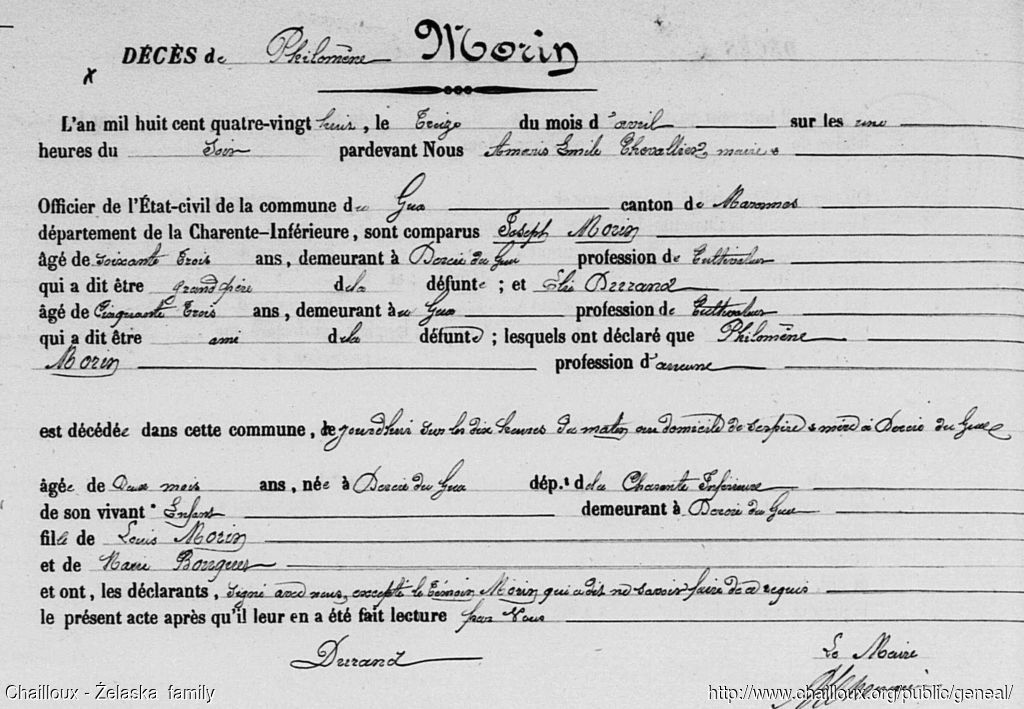 DÉCÈS de Philomène Morin
L'an mil huit cent quatre-vingt huit, le Treize du mois d'avril sur les une
heures du Soir pardevant Nous Emile Chevallier, maire
Officier de l'État-civil de la commune du Gua canton de Marennes
département de la Charente-Inférieure, sont comparus Joseph Morin
âgé de soixante Trois ans, demeurant à Dercie du Gua profession de Cultivateur
qui a dit être grand père de la défunte ; et Élie Durand
âgé de Cinquante Trois ans, demeurant au Gua profession de Cultivateur
qui a dit être ami de la défunte ; lesquels ont déclaré que Philomène
Morin profession d'aucune
est décédée dans cette commune, jourdhui sur les dix heures du matin au domicile de ses père & mère à Dercie du Gua
âgée de Deux mois ans, née à Dercie du Gua dép.t de la Charente Inférieure
de son vivant Enfant demeurant à Dercie du Gua
fille de Louis Morin
et de Marie
et ont, les déclarants, signé avec nous, excepté le témoin Morin qui a dit ne savoir faire de ce requis
le présent acte après qu'il leur en a été fait lecture par Nous
Durand
Le Maire
Chailloux - Żelaska family
http://www.chailloux.org/public/geneal/